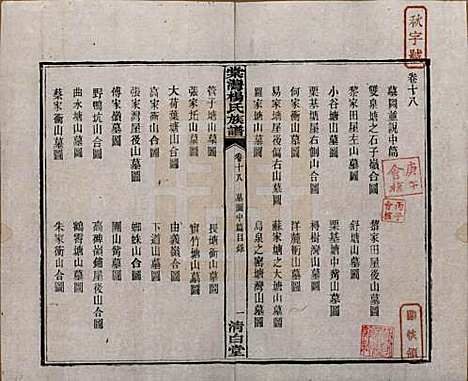 秋字號
卷十八
墓圖並說中篇
雙泉塘之石子嶺合圖
黎家田屋左山墓圖
黎家田屋後山墓圖
小谷塘山墓圖
舒塘山墓圖
栗基屋右側山合圖
栗基塘中灣山墓圖
何家塘山墓圖
樟樹灣山墓圖
李家灣屋後偏右山墓圖
洋鹿衝山墓圖
羅家塘山墓圖
蘇家塘之大塘山墓圖
烏泉之窰塘灣山墓圖
棠灣楊氏族譜
卷十八
墓圖中篇目錄
一
清白堂
管子塘山墓圖
長塘衝山墓圖
張家坵山墓圖
官竹塘山合圖
大荷葉塘山合圖
由義嶺山合圖
高家衝山合圖
下道山墓圖
車家灣屋後山墓圖
螂蛛山合圖
傅家嶺墓圖
團山衝墓圖
野鴨坑山合圖
高碑嶺鍾屋山墓圖
曲水塘山墓圖
鶴霄塘山墓圖
蔡家衝山墓圖
朱家衝山合圖
庚子會核
丙子會核